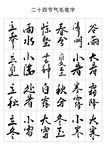 二十四节气毛笔字
立春 雨水 惊蛰 春分 清明 谷雨
立夏 小满 芒种 夏至 小暑 大暑
立秋 处暑 白露 秋分 寒露 霜降
立冬 小雪 大雪 冬至 小寒 大寒